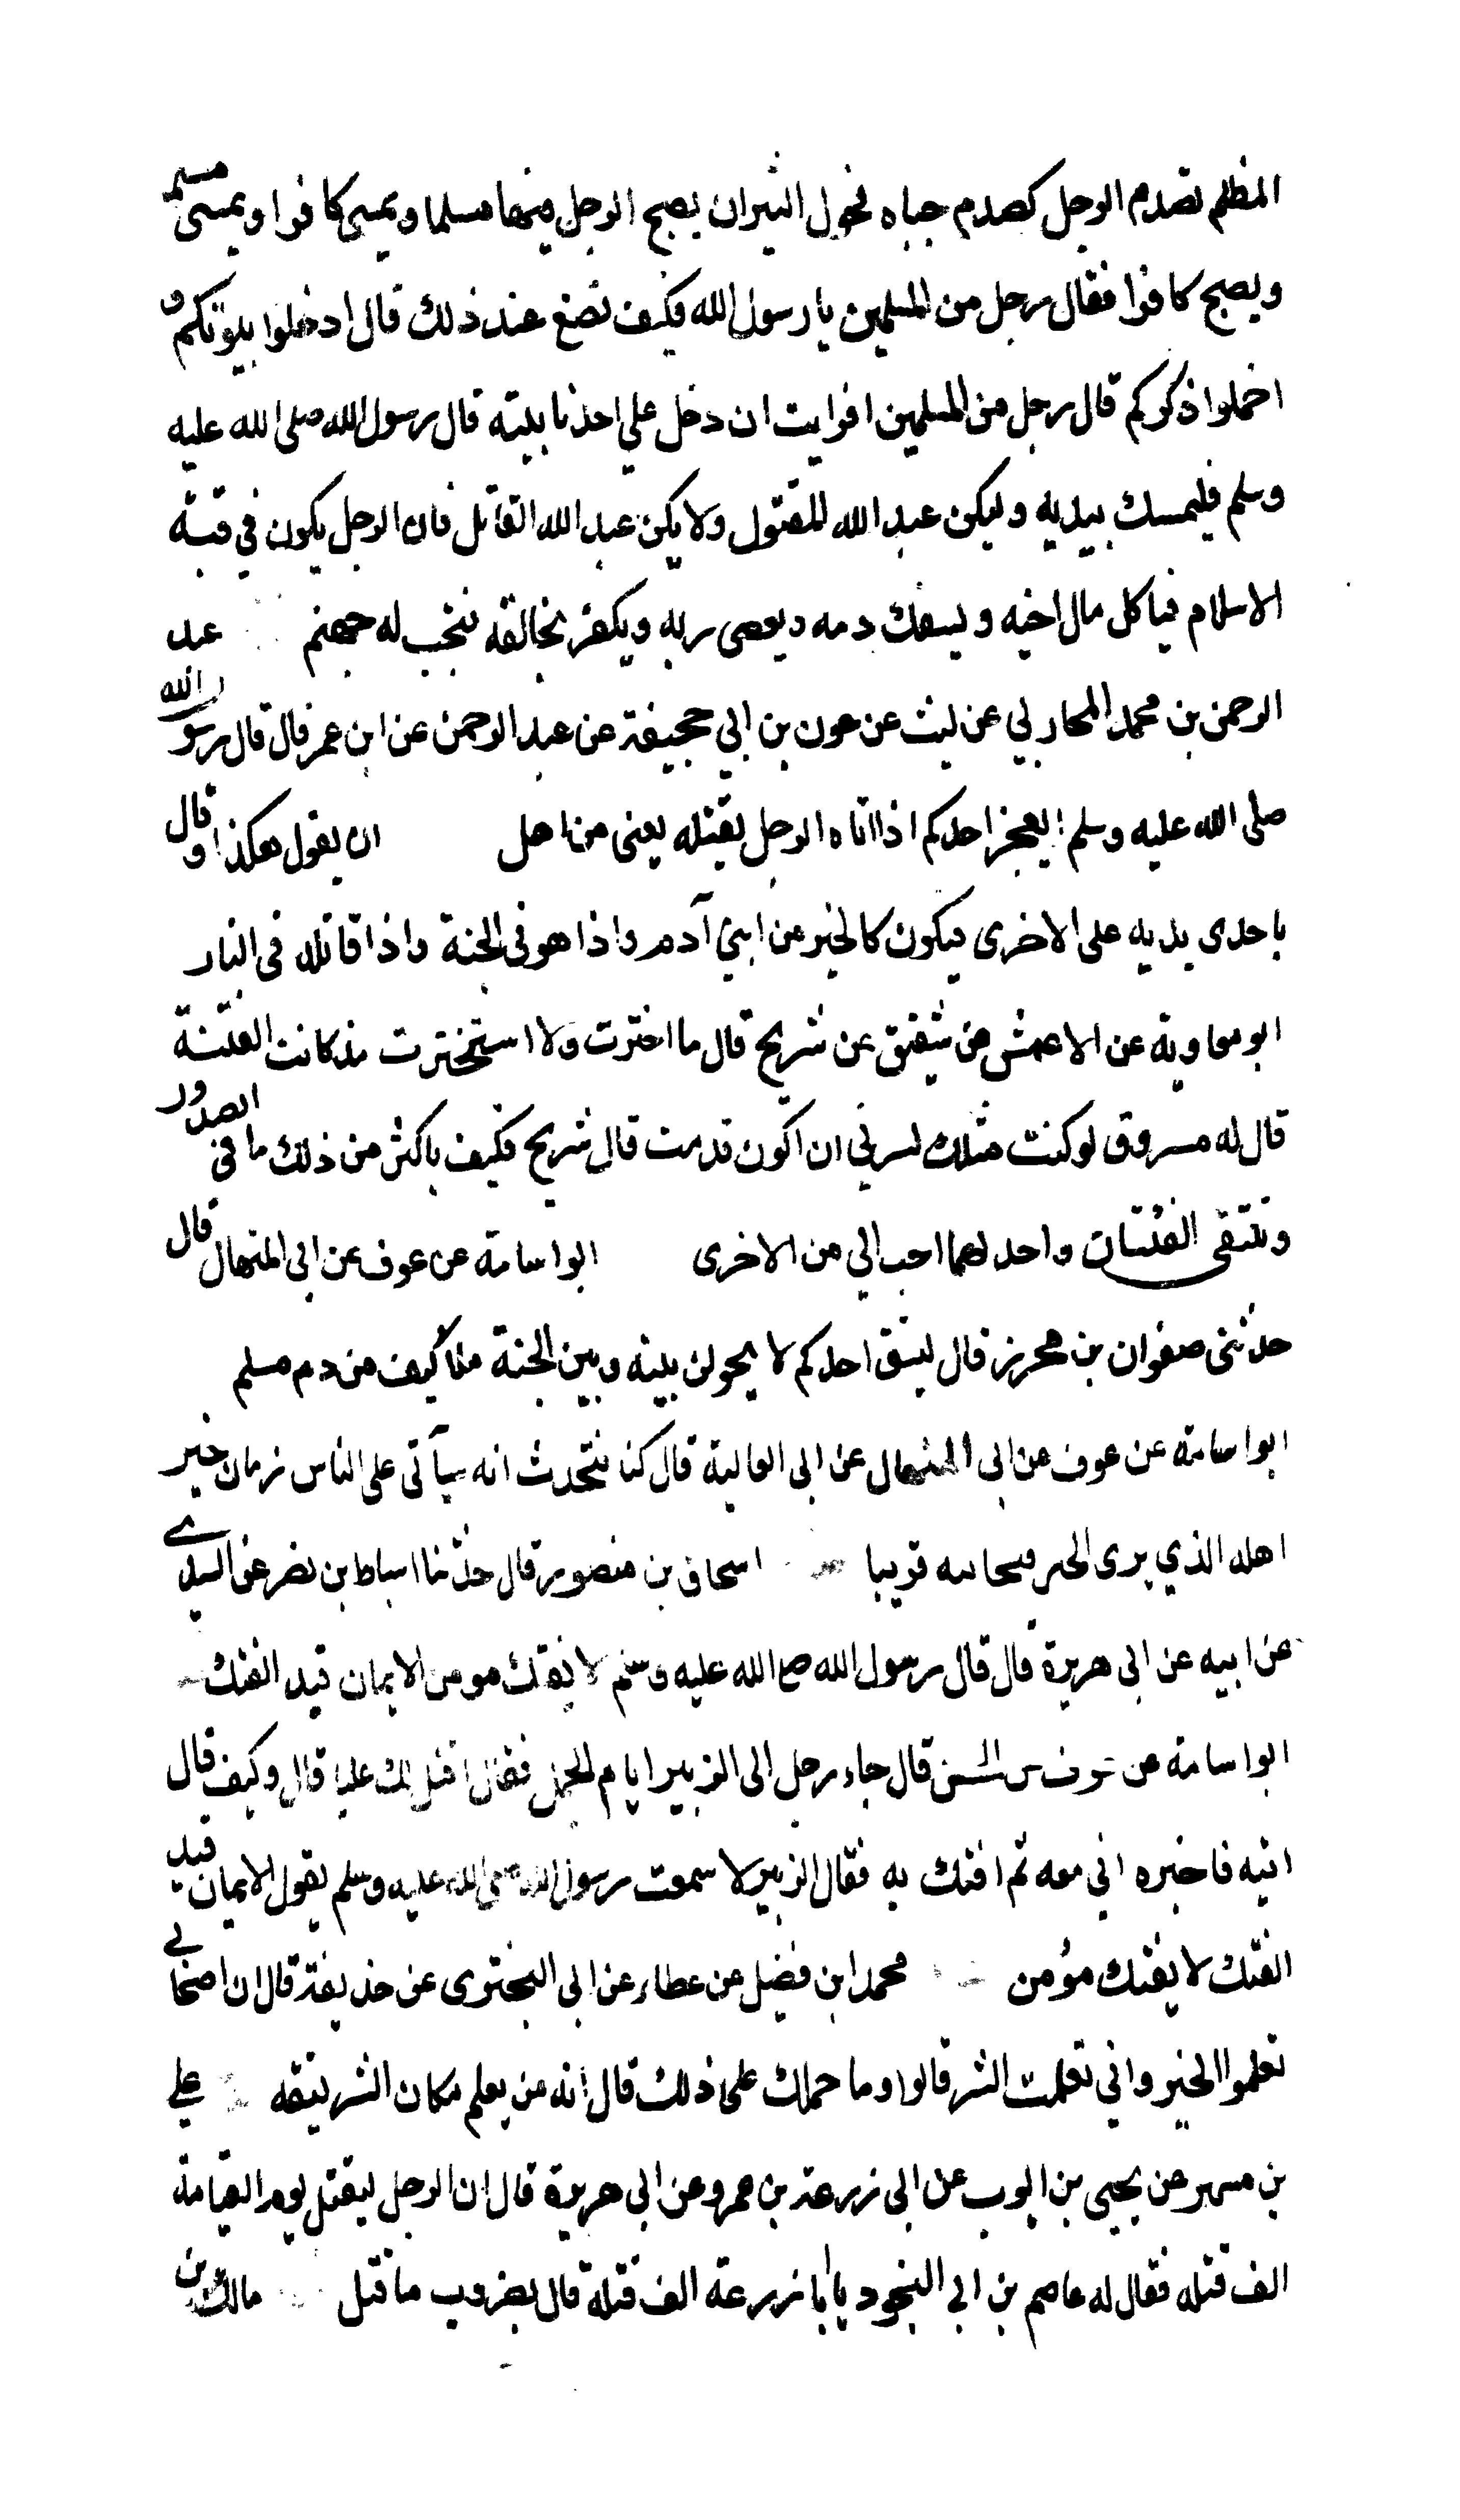 المظلم تصدم الرجل كصدم جباه فحول الثيران يصبح الرجل فيها مسلما ويمسي كافرا ويمسي مسلما
ويصبح كافرا فقال رجل من المسلمين يا رسول الله فكيف نصنع عند ذلك قال ادخلوا بيوتكم و
اخملوا ذكركم قال رجل من المسلمين افرايت ان دخل علي احدنا بيته قال رسول الله صلى الله عليه
وسلم فليمسك بيديه وليكن عبد الله المقتول ولا يكن عبد الله القاتل فان الرجل يكون في قبة
الاسلام فياكل مال اخيه ويسفك دمه ويعصى ربه ويكفر بخالقه فتجب له جهنم عبد
الرحمن بن محمد المحاربي عن ليث عن عون بن ابي جحيفة عن عبد الرحمن عن ابن عمر قال قال رسول الله
صلى الله عليه وسلم ايعجز احدكم اذا اتاه الرجل يقتله يعنى من اهل ان يقول هكذا وقال
باحدى يديه على الاخرى فيكون كالخير من ابني آدم واذا هو في الجنة واذا قاتله في النار
ابو معاوية عن الاعمش عن شقيق عن شريح قال ما اخبرت ولا استخبرت مذ كانت الفتنة
قال له مسروق لو كنت مثلك لسرني ان اكون قد مت قال شريح فكيف باكثر من ذلك ما في الصدور
وتلتقى الفئتان واحداهما احب الي من الاخرى ابو اسامة عن عوف عن ابى المنهال قال
حدثنى صفوان بن محرز قال ليتق احدكم لا يحولن بينه وبين الجنة ملأ كيف من دم مسلم
ابو اسامة عن عوف عن ابى المنهال عن ابى العالية قال كنا نتحدث انه سيأتى على الناس زمان خير
اهله الذي يرى الخير فيجانبه قريبا اسحاق بن منصور قال حدثنا اسباط بن نصر عن السدي
عن ابيه عن ابى هريرة قال قال رسول الله صلع الله عليه وسلم لا يفتك مومن الايمان قيد الفتك
ابو اسامة عن عوف عن الحسن قال جاء رجل الى الزبير ايام الجمل فقال اقتل لك عليا قال وكيف قال
اتيه فاخبره اني معه ثم افتك به فقال الزبير لا سمعت رسول الله صلى الله عليه وسلم يقول الايمان قيد
الفتك لا يفتك مؤمن محمد ابن فضيل عن عطاء عن ابى البخترى عن حذيفة قال ان اصحابي
تعلموا الخير واني تعلمت الشر قالوا وما حملك على ذلك قال انه من يعلم مكان الشر يتقه علي
بن مسهر عن يحيى بن ايوب عن ابى زرعة بن عمرو عن ابى هريرة قال ان الرجل ليقتل يوم القيامة
الف قتله فقال له عاصم بن ابى النجود يا أبا زرعة الف قتلة قال بضروب ما قتل مالك بن